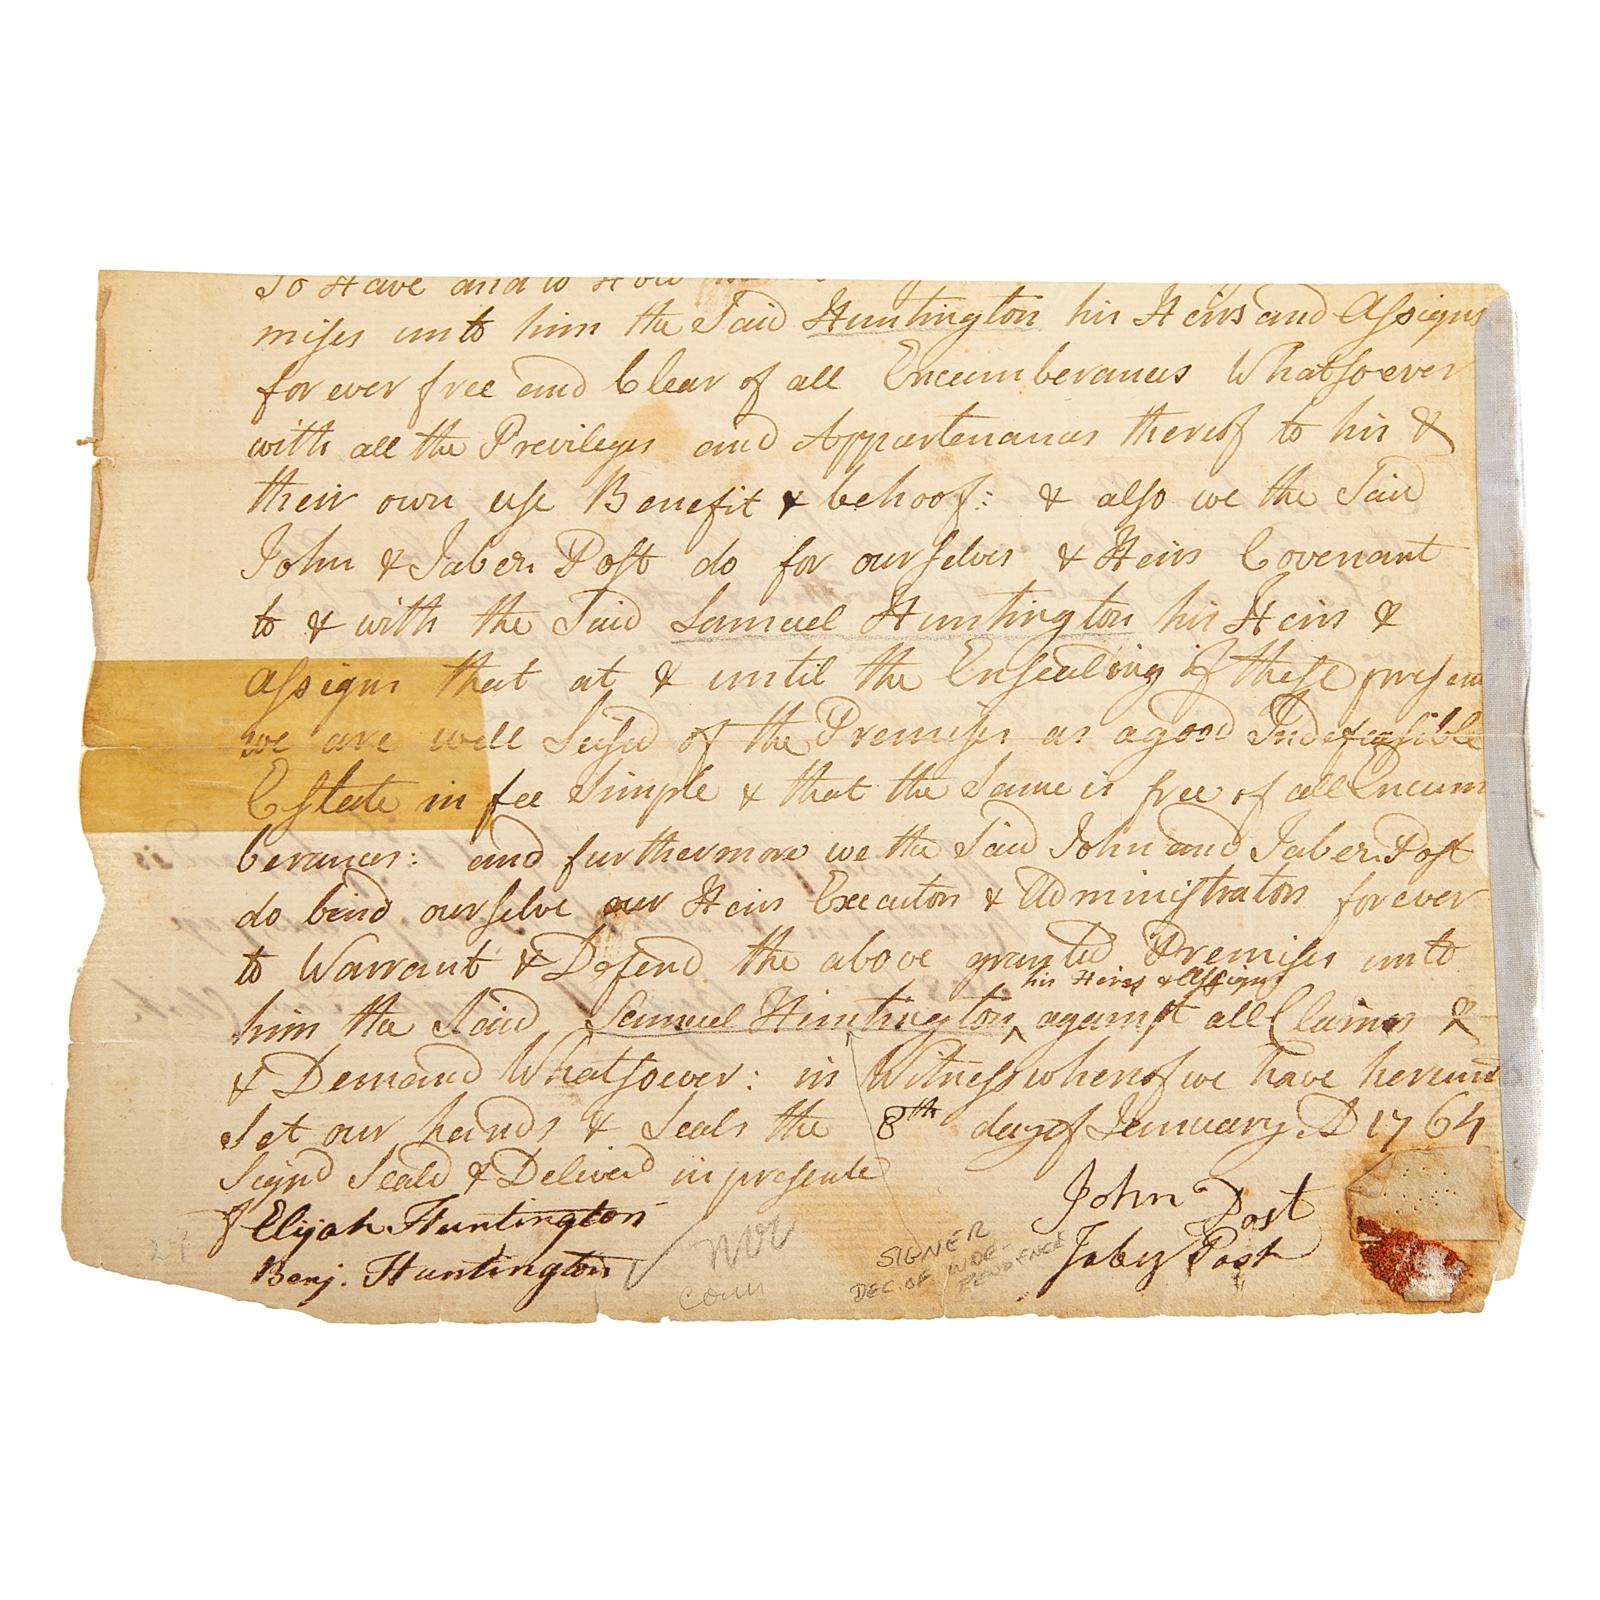 To Have and to Hold
mises unto him the Said Huntington his Heirs and Assigns
for ever free and Clear of all Encumberances Whatsoever
with all the Previleges and Appurtenances thereof to his &
their own use Benefit & behoof: & also we the Said
John & Jabez Post do for ourselves & Heirs Covenant
to & with the Said Samuel Huntington his Heirs &
Assigns that at & until the Ensealing of these presen
we are well Seisd of the Premises as a good Indefeasible
Estate in fee Simple & that the Same is free of all Encum
berances: and furthermore we the Said John and Jabez Post
do bind ourselve our Heirs Executors & Administrators forever
to Warrant & Defend the above granted Premises unto
his Heires & Assigns
him the Said Samuel Huntington ‸ against all Claims &
& Demand Whatsoever: in Witness whereof we have hereunt
Set our hands & Seals the 8th day of January AD 1764
Signd Seald & Deliverd in presente
of Elijah Huntington
Benj. Huntington
John Post
Jabez Post
Conn
SIGNER
DEC. OF INDE-
PENDENCE